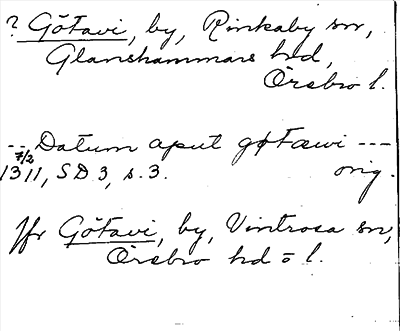 ? Götavi, by, Rinkaby sn,
Glanshammars hd,
Örebro l.
-- Datum aput gøtæwi ---
7/2
1311, SD 3, s. 3. orig.
Jfr Götavi, by, Vintrosa sn,
Örebro hd o l.